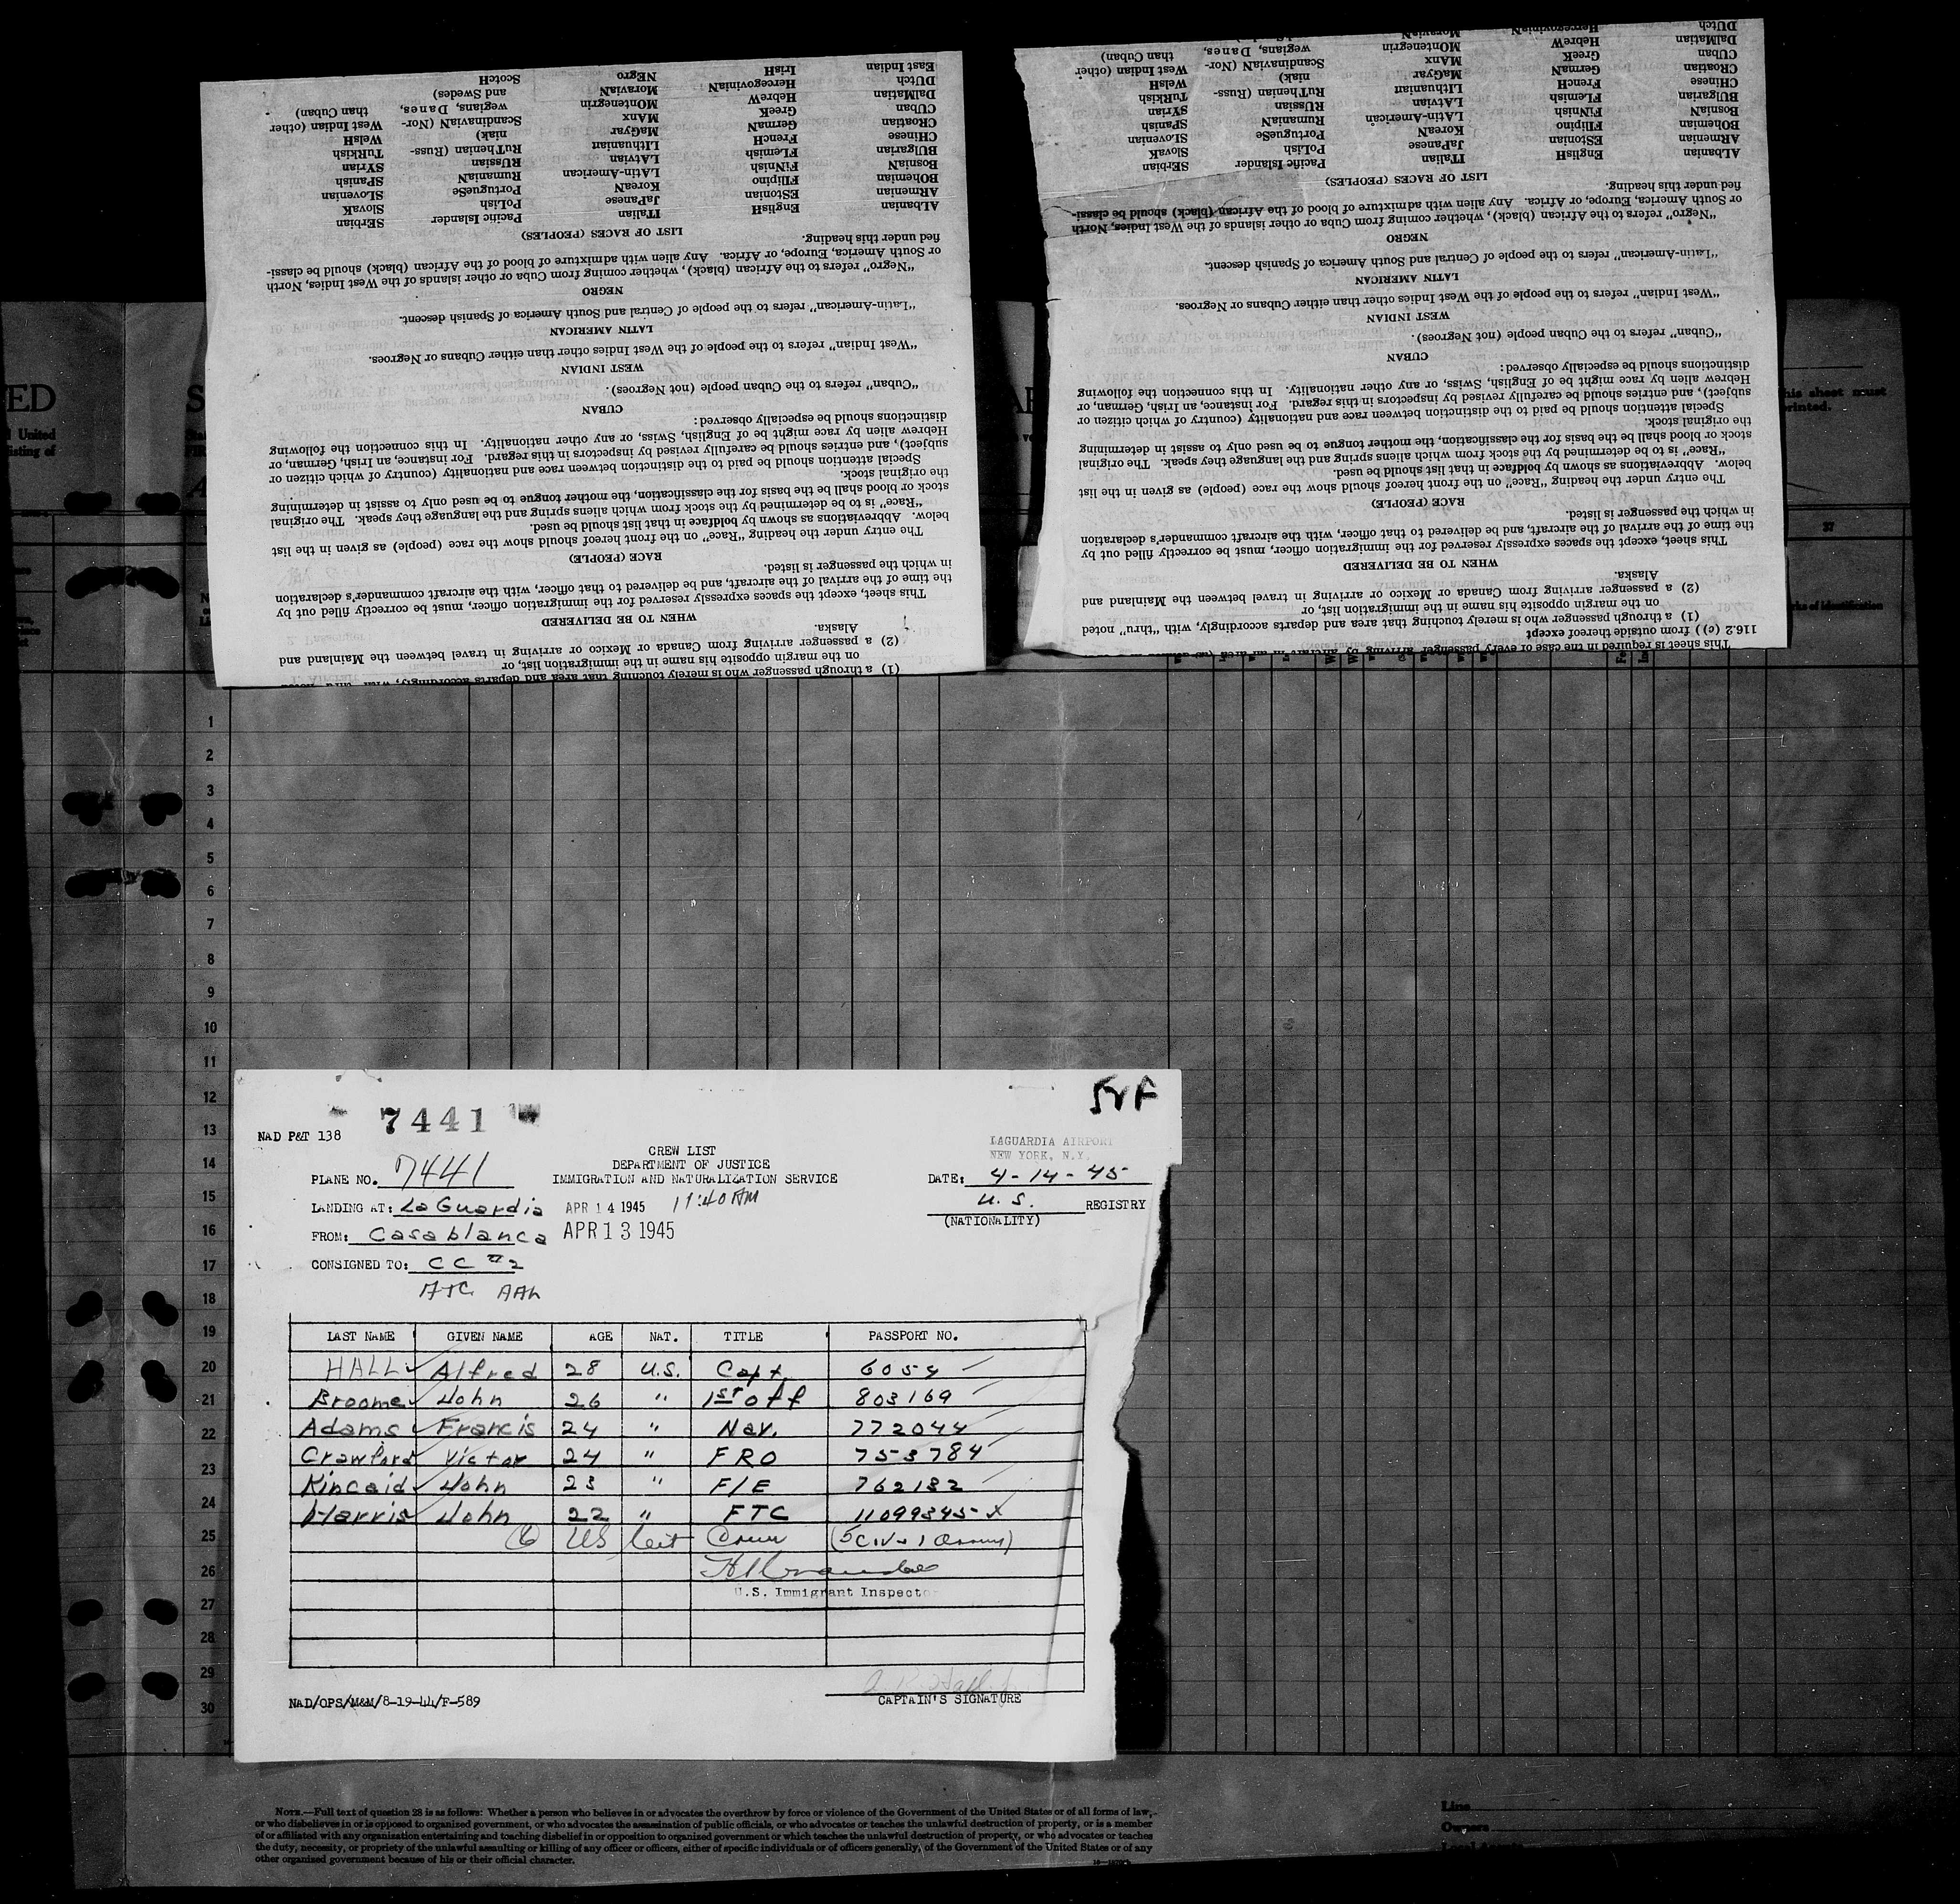 East Indian IrisH NEgro ScotcH
DUtch HercegoviniaN MoraviaN and Swedes)
DalMatian HebreW MOntenegrin wegians, Danes, than Cuban)
CUban GreeK MAnx ScandinaviaN (Nor- West Indian (other
CRoatian GermaN MaGyar niak) WelsH
CHinese FrencH LIthuanian RuThenian (Russ- TuRkish
BUlgarian FLemish LAtvian RUssian SYrian
BosniaN FiNnish LAtin-American RumaniaN SPanish
BOhemian FIlipino KoreaN PortugueSe SLovenian
ARmenian EStonian JaPanese PoLish SlovaK
ALbanian EnglisH ITalian Pacific Islander SErbian
LIST OF RACES (PEOPLES)
fied under this heading.
or South America, Europe, or Africa. Any alien with admixture of blood of the African (black) should be classi-
"Negro" refers to the African (black), whether coming from Cuba or other islands of the West Indies, North
NEGRO
"Latin-American" refers to the people of Central and South America of Spanish descent.
LATIN AMERICAN
"West Indian" refers to the people of the West Indies other than either Cubans or Negroes.
WEST INDIAN
"Cuban" refers to the Cuban people (not Negroes).
CUBAN
distinctions should be especially observed:
Hebrew alien by race might be of English, Swiss, or any other nationality. In this connection the following
subject), and entries should be carefully revised by inspectors in this regard. For instance, an Irish, German, or
Special attention should be paid to the distinction between race and nationality (country of which citizen or
the original stock.
stock or blood shall be the basis for the classification, the mother tongue to be used only to assist in determining
"Race" is to be determined by the stock from which aliens spring and the language they speak. The original
below. Abbreviations as shown by boldface in that list should be used.
The entry under the heading "Race" on the front hereof should show the race (people) as given in the list
RACE (PEOPLE)
in which the passenger is listed.
the time of the arrival of the aircraft, and be delivered to that officer, with the aircraft commander's declaration
This sheet, except the spaces expressly reserved for the immigration officer, must be correctly filled out by
WHEN TO BE DELIVERED
Alaska.
(2) a passenger arriving from Canada or Mexico or arriving in travel between the Mainland and
on the margin opposite his name in the immigration list, or
(1) a through passenger who is merely touching that area and departs accordingly, with "thru" noted
DUtch HercegoviniaN MoraviaN
DalMatian HebreW MOntenegrin wegians, Danes, than Cuban)
CUban GreeK MAnx ScandinaviaN (Nor- West Indian (other
CRoatian GermaN MaGyar niak) WelsH
CHinese FrencH LIthuanian RuThenian (Russ- TuRkish
BUlgarian FLemish LAtvian RUssian SYrian
BosniaN FiNnish LAtin-American RumaniaN SPanish
BOhemian FIlipino KoreaN PortugueSe SLovenian
ARmenian EStonian JaPanese PoLish SlovaK
ALbanian EnglisH ITalian Pacific Islander SErbian
LIST OF RACES (PEOPLES)
fied under this heading.
or South America, Europe, or Africa. Any alien with admixture of blood of the African (black) should be classi-
"Negro" refers to the African (black), whether coming from Cuba or other islands of the West Indies, North
NEGRO
"Latin-American" refers to the people of Central and South America of Spanish descent.
LATIN AMERICAN
"West Indian" refers to the people of the West Indies other than either Cubans or Negroes.
WEST INDIAN
"Cuban" refers to the Cuban people (not Negroes).
CUBAN
distinctions should be especially observed:
Hebrew alien by race might be of English, Swiss, or any other nationality. In this connection the following
subject), and entries should be carefully revised by inspectors in this regard. For instance, an Irish, German, or
Special attention should be paid to the distinction between race and nationality (country of which citizen or
the original stock.
stock or blood shall be the basis for the classification, the mother tongue to be used only to assist in determining
"Race" is to be determined by the stock from which aliens spring and the language they speak. The original
below. Abbreviations as shown by boldface in that list should be used.
The entry under the heading "Race" on the front hereof should show the race (people) as given in the list
RACE (PEOPLE)
in which the passenger is listed.
the time of the arrival of the aircraft, and be delivered to that officer, with the aircraft commander's declaration
This sheet, except the spaces expressly reserved for the immigration officer, must be correctly filled out by
WHEN TO BE DELIVERED
Alaska.
(2) a passenger arriving from Canada or Mexico or arriving in travel between the Mainland and
on the margin opposite his name in the immigration list, or
(1) a through passenger who is merely touching that area and departs accordingly, with "thru" noted
116.2 (c)) from outside thereof except
This sheet is required in the case of every passenger arriving by aircraft in an area
ED
United
isting of
this sheet must
printed.
37
Marks of Identification
1
2
3
4
5
6
7
8
9
10
11
12
13
14
15
16
17
18
19
20
21
22
23
24
25
26
27
28
29
30
7441
NAD P&T 138
CREW LIST
DEPARTMENT OF JUSTICE
IMMIGRATION AND NATURALIZATION SERVICE
LAGUARDIA AIRPORT
NEW YORK, N.Y.
PLANE NO. 7441
DATE: 4-14-45
LANDING AT: LaGuardia APR 14 1945 11:40 AM
U.S. REGISTRY
(NATIONALITY)
FROM: Casablanca APR 13 1945
CONSIGNED TO: CC #2
ATC AAL
LAST NAME GIVEN NAME AGE NAT. TITLE PASSPORT NO.
HALL Alfred 28 U.S. Capt. 6054
Broome John 26 " 1st Off 803169
Adams Francis 24 " Nav. 772044
Crawford Victor 24 " FRO 753784
Kincaid John 23 " F/E 762182
Harris John 22 " FTC 11099345 x
(6) US Cit Crew (5 Civ + 1
U.S. Immigrant Inspector
CAPTAIN'S SIGNATURE
NAD/OPS/M&M/8-19-44/F-589
NOTE.—Full text of question 28 is as follows: Whether a person who believes in or advocates the overthrow by force or violence of the Government of the United States or of all forms of law,
or who disbelieves in or is opposed to organized government, or who advocates the assassination of public officials, or who advocates or teaches the unlawful destruction of property, or is a member
of or affiliated with any organization entertaining and teaching disbelief in or opposition to organized government or which teaches the unlawful destruction of property, or who advocates or teaches
the duty, necessity, or propriety of the unlawful assaulting or killing of any officer or officers, either of specific individuals or of officers generally, of the Government of the United States or of any
other organized government because of his or their official character.
Line
Owners
Local Agents